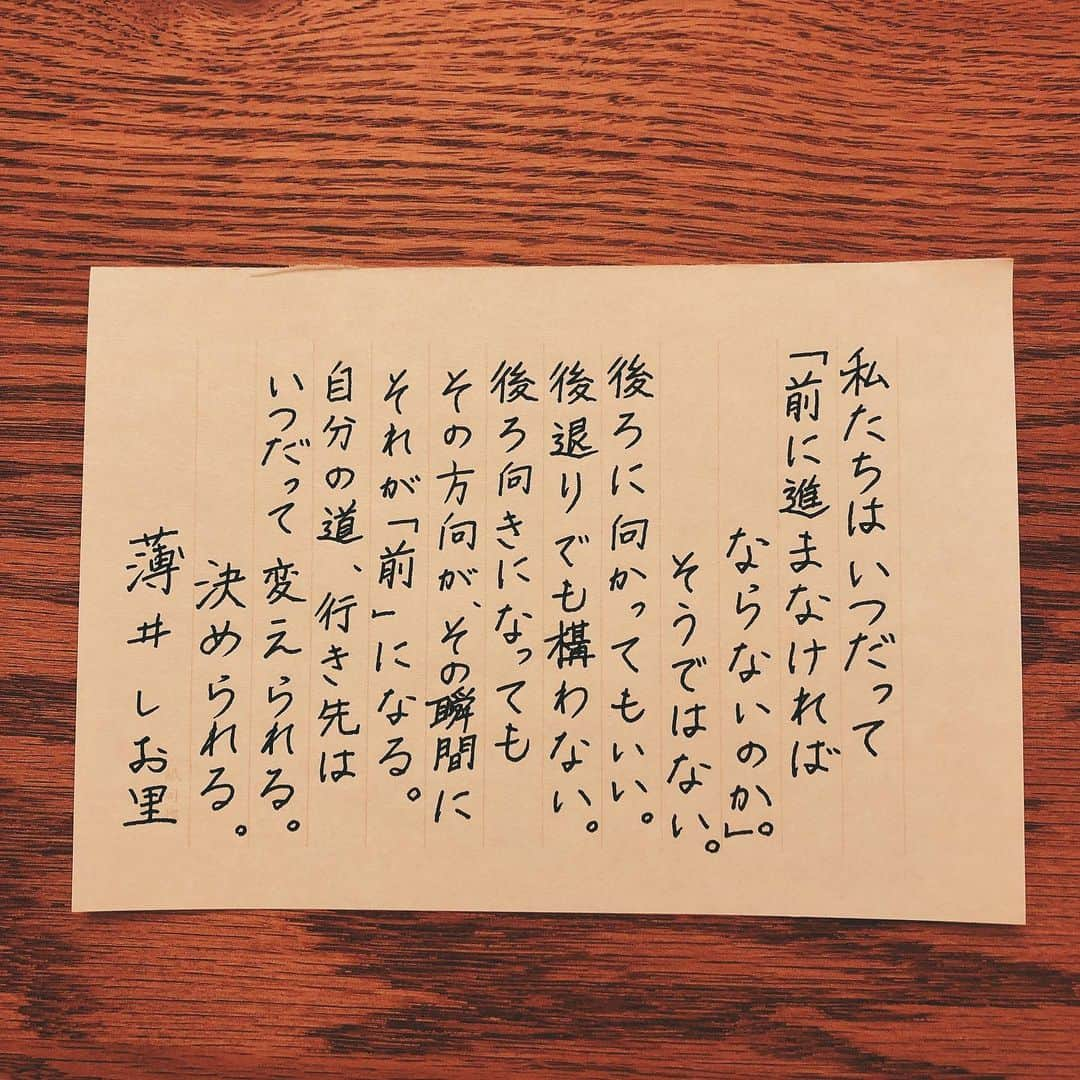 私たちはいつだって
「前に進まなければ
ならないのか」。
そうではない。
後ろに向かってもいい。
後退りでも構わない。
後ろ向きになっても
その方向が、その瞬間に
それが「前」になる。
自分の道、行き先は
いつだって変えられる。
決められる。
薄井しお里